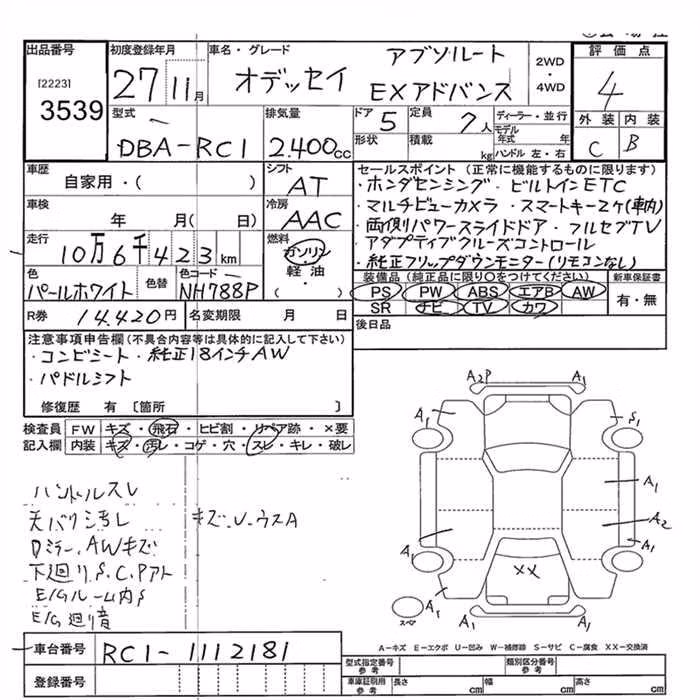 出品番号
[2223]
3539
初度登録年月
27 11月
車名・グレード
オデッセイ
アブソルート
EXアドバンス
2WD
・
4WD
評価点
4
外装 内装
C B
型式
DBA-RC1
排気量
2.400cc
ドア 5
定員 7人
ディーラー・並行
形状
積載 kg
モデル年式 年
ハンドル 左・右
車歴
自家用・( )
シフト
AT
車検
年 月( 日)
冷房
AAC
走行
10万6千423km
燃料
ガソリン
・
軽油
( )
色
パールホワイト
色替
色コード
NH788P
R券 14.420円
名変期限 月 日
セールスポイント(正常に機能するものに限ります)
・ホンダセンシング・ビルトインETC
・マルチビューカメラ・スマートキー2ヶ(車内)
・両側パワースライドドア・フルセグTV
・アダプティブクルーズコントロール
・純正フリップダウンモニター(リモコンなし)
装備品(純正品に限り○をつけてください)
PS PW ABS エアB AW
SR ナビ TV カワ
新車保証書
有・無
後日品
注意事項申告欄(不具合内容等は具体的に記入して下さい)
・コンビシート・純正18インチAW
・パドルシフト
修復歴 有 〔箇所 〕
検査員
記入欄
FW キズ・飛石・ヒビ割・リペア跡・×要
内装 キズ・汚レ・コゲ・穴・スレ・キレ・破レ
ハンドルスレ
天バリシ汚レ
キズ、U・ウスA
Dミラー、AWキズ
下廻リS、C、Pアト
E/Gルーム内S
E/G廻リ音
A2P
A1
A1
S1
A1
A2
A1
A1
A1
A1
XX
スペア
A-キズ E-エクボ U-凹み W-補修跡 S-サビ C-腐食 XX-交換済
車台番号
RC1-1112181
登録番号
型式指定番号
参考
類別区分番号
参考
車庫証明用
参考
長さ cm
幅 cm
高さ cm